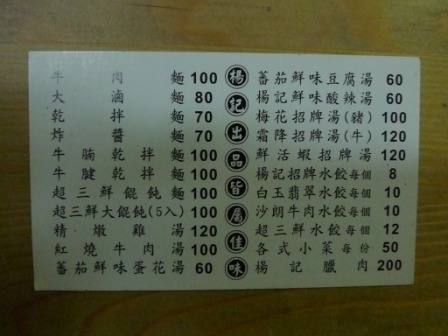 牛肉麵 100
大滷麵 80
乾拌麵 70
炸醬麵 70
牛腩乾拌麵 100
牛腱乾拌麵 100
超三鮮餛飩麵 100
超三鮮大餛飩(5入) 100
精燉雞湯 120
紅燒牛肉湯 100
蕃茄鮮味蛋花湯 60
楊記出品皆屬佳味
蕃茄鮮味豆腐湯 60
楊記鮮味酸辣湯 60
梅花招牌湯(豬) 100
霜降招牌湯(牛) 120
鮮活蝦招牌湯 120
楊記招牌水餃每個 8
白玉翡翠水餃每個 10
沙朗牛肉水餃每個 10
超三鮮水餃每個 12
各式小菜每份 50
楊記臘肉 200